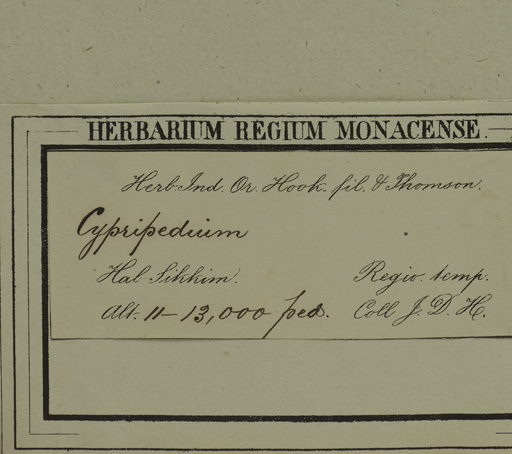 HERBARIUM REGIUM MONACENSE.
Herb. Ind. Or. Hook. fil. & Thomson.
Cypripedium
Hab Sikkim.
Regio. temp.
Alt. 11–13,000 ped.
Coll J. D. H.